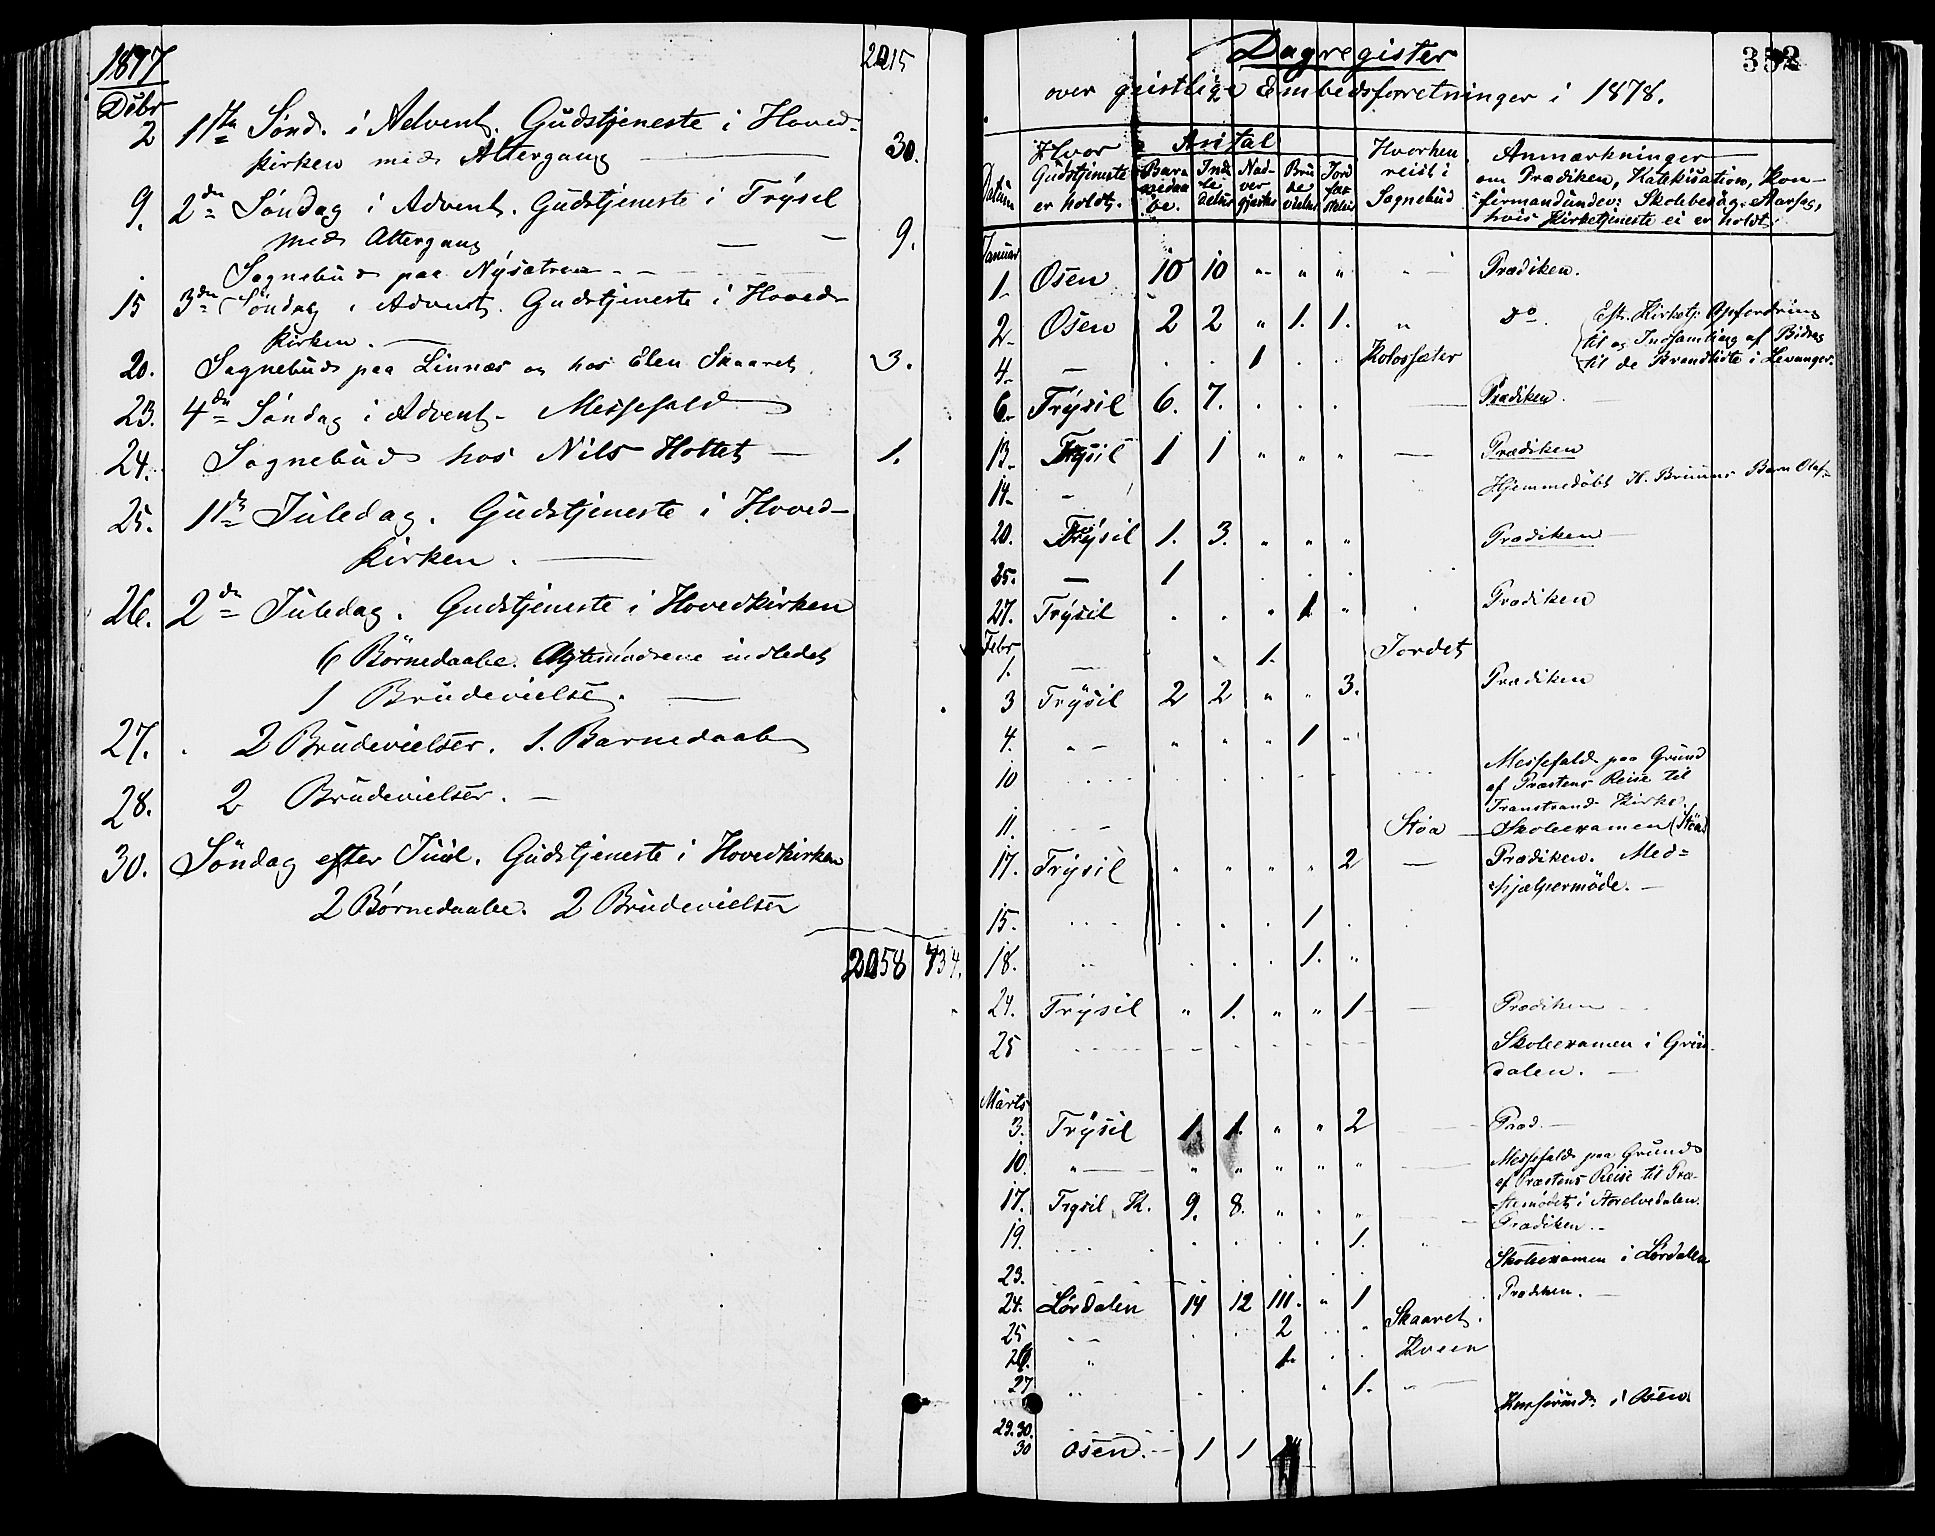 1877
2015
Decbr
2 1ste Sønd. i Advent. Gudstjeneste i Hoved-
kirken med Altergang — 30.
9. 2den Søndag i Advent. Gudstjeneste i Trysil
med Altergang — — 9.
Sognebud paa Nysætren - -
15 3die Søndag i Advent. Gudstjeneste i Hoved-
kirken. —
20. Sognebud paa Linnæs og hos Elen Skaaret. 3.
23. 4de Søndag i Advent - Messefald
24. Sognebud hos Nils Holtet — 1.
25. 1ste Juledag. Gudstjeneste i Hoved-
kirken. —
26. 2den Juledag. Gudstjeneste i Hovedkirken
6 Børnedaabe. Ægtemødrene indledet
1 Brudevielse. —
27. 2 Brudevielser. 1. Barnedaab
28. 2 Brudevielser. —
30. Søndag efter Juul. Gudstjeneste i Hovedkirken
2 Børnedaabe. 2 Brudevielser
2058 734.
Dagregister 352
over geistlige Embedsforretninger i 1878.
Datum
Hvor Gudstjeneste er holdt.
Antal
Barnedaabe. Indledelser Nadvergjester Brudevielser Jordfæstelser
Hvorhen reist i Sognebud
Anmærkninger
om Prædiken, Katekisation, Kon-
firmandunderv: Skolebesøg. Aarsag,
hvis Kirketjeneste ei er holdt.
Januar
1. Osen 10 10 " " " " — Prædiken.
2. Osen 2 2 " 1. 1. " do. Eft. Kirketj. Opfordring
til og Indsamling af Bidrag
4. — . . 1 . . Kolossæter til de Brandlidte i Levanger.
6. Trysil 6. 7. . . . — Prædiken. —
13. Trysil 1 1 " " " — Prædiken
14. - Hjemmedøbt H. Bruuns Barn Olaf
20. Trysil 1. 3. " " " Prædiken —
25. — 1 . . .
27. Trysil . . " 1 " . Prædiken
Febr
1. — . 1. Jordet
3 Trysil 2 2 " " 3. Prædiken
4. " - " " " 1 "
10 Messefald paa Grund
af Præstens Reise til
Transtrand Kirke.
11. Støa — Skoleexamen (Støa)
17. Trysil " " " " 2 — Prædiken. Med-
hjælpermøde. —
15. . . . 1 .
18. . . . 1. "
24. Trysil " 1. " " 1 - — Prædiken
25 Skoleexamen i Grøn-
dalen. —
Marts
3. Trysil 1. 1. " " 2 — Præd. —
10. " — " " " " " Messefald paa Grund
af Præstens Reise til Præ-
17. Trysil K. 9. 8. " . " stemødet i Storelvedalen.
Prædiken. -
19. . . . . 1. "
23. Skoleexamen i Lørdalen
24. Lørdalen 14 12 111. " 1 Prædiken. —
25 " — . . 2 . " Skaaret.
26. " 1. . . Kveen
27 " . . . " 1. " —
29.30. Konfirmd. i Osen
30 Osen. — 1 1